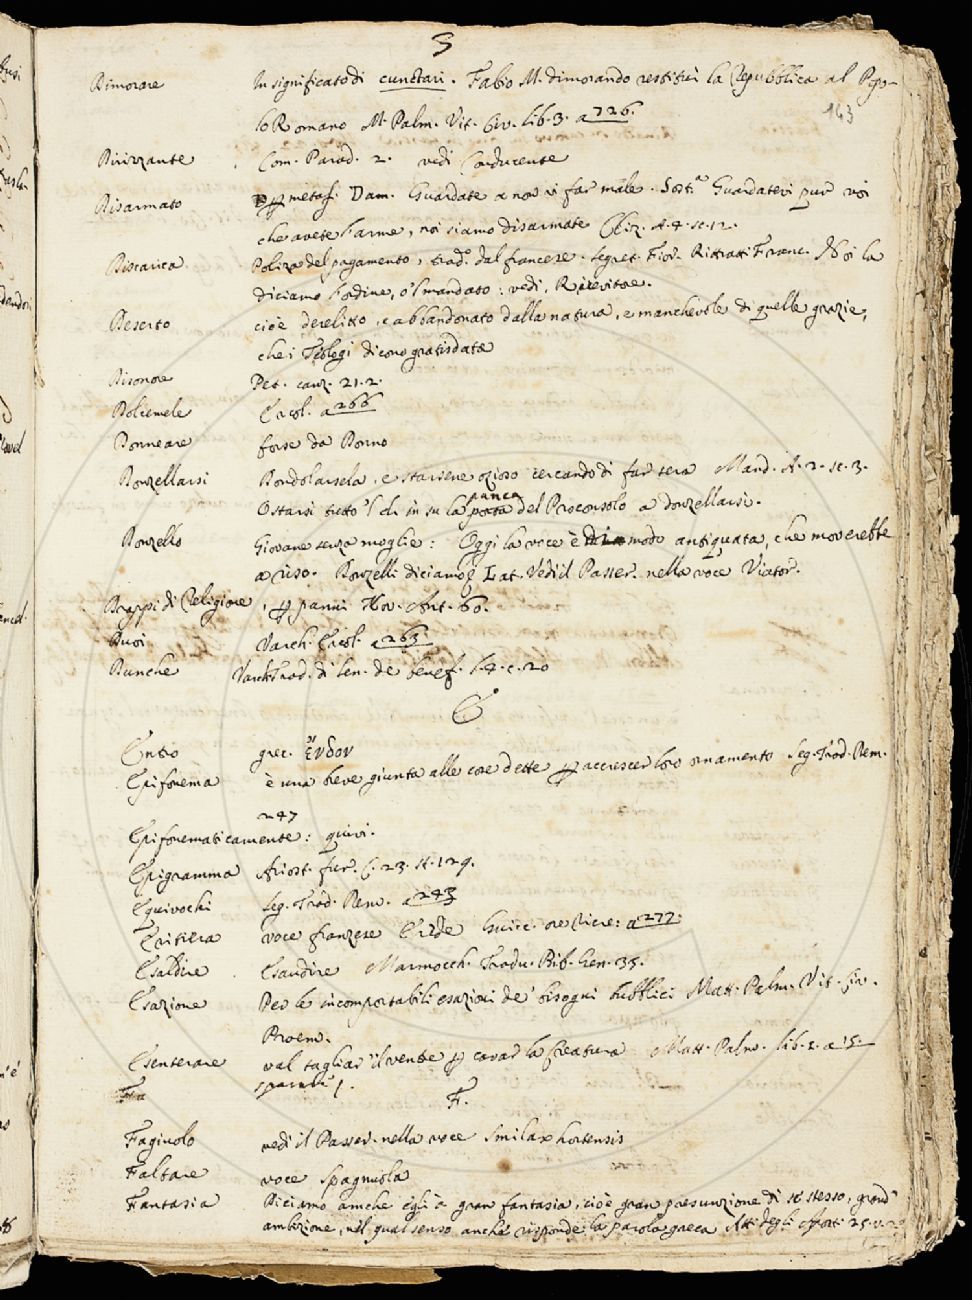 Dimorare In significato di cunctari. Fabio M. dimorando restituì la Repubblica al Popo-
163
lo Romano M. Palm. Vit. Civ. lib. 3. a 726.
Dirizzante Com. Parad. 2. vedi Conducente
Disarmato metaf. Dam. Guardate a non vi far male. Sost.ᵃ Guardatevi pur voi
che avete l'arme, noi siamo disarmate Cliz. A. 4. sc. 12.
Discarica Poliza del pagamento, trad.º dal francese. Segret. Fior. Ritratti Franc. Noi la
diciamo l'ordine, o 'l mandato: vedi,
Deserto cioè derelitto, e abbandonato dalla natura, e manchevole di quelle grazie,
che i Teologi dicono gratisdatae
Disonore Pet. canz. 21. 2.
Dolcemele Ercol. a 266
Donneare forse da Donno
Donzellarsi Dondolarsela, e starsene ozioso cercando di far sera Mand. A. 2. sc. 3.
O starsi tutto 'l dì in su la panca del Proconsolo a donzellarsi.
Donzello Giovane senza moglie: Oggi la voce è modo antiquata, che moverebbe
a riso. Donzelli diciamo Lat. Vedi il Passer. nella voce Viator.
Drappi di Religione, panni Nov. Ant. 60.
Dusi Varch. Ercol. a 263.
Dunche Varch. Trad. di Sen. de benef. l. 4. c. 20
E
Entro grec. ἔνδον
Epifonema è una breve giunta alle cose dette accrescer loro ornamento Seg. Trad. Dem.
247
Epifonematicamente: quivi.
Epigramma Ariost. fur. C. 23. st. 129.
Equivochi Seg. Trad. Dem. a 243
voce franzese Guicc. a 277.
Esaldire Esaudire Marmocch. Tradu. Bib. Gen. 35.
Esazione Per le incomportabili esazioni de' bisogni pubblici Matt. Palm. Vit. Civ.
Proem.
Esenterare val tagliar il ventre cavar la creatura Matt. Palm. lib. 1. a 15.
F.
Fagiuolo vedi il Passer. nella voce Smilax hortensis
Faltare voce spagnuola
Fantasia Diciamo anche egli à gran fantasia, cioè gran presunzione di se stesso, grand'
ambizione, nel qual senso anche risponde la parola greca Atti degli Apost. 25. v. 23